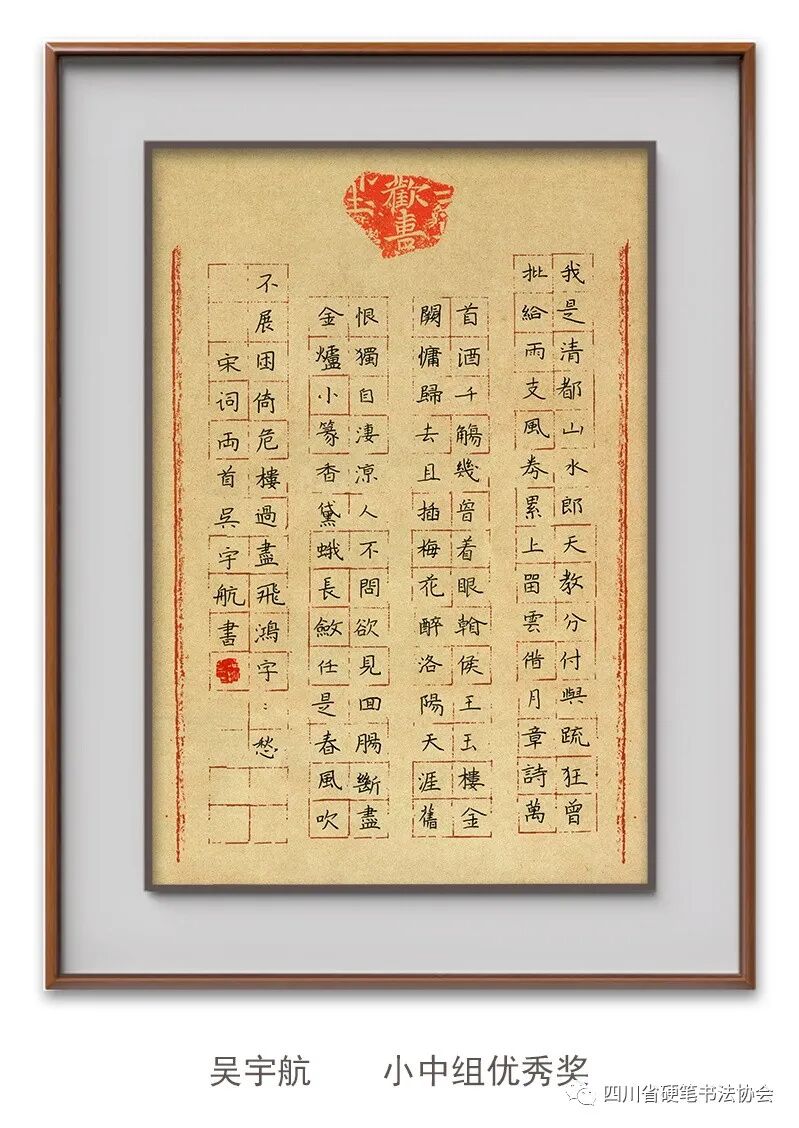 歡喜
我是清都山水郎天教分付與疏狂曾
批給雨支風券累上留雲借月章詩萬
首酒千觴幾曾着眼翰侯王玉樓金
闕慵歸去且插梅花醉洛陽天涯舊
恨獨自淒涼人不問欲見回腸斷盡
金爐小篆香黛蛾長斂任是春風吹
不展困倚危樓過盡飛鴻字:愁
宋詞両首吳宇航書
吴宇航 小中组优秀奖
四川省硬笔书法协会